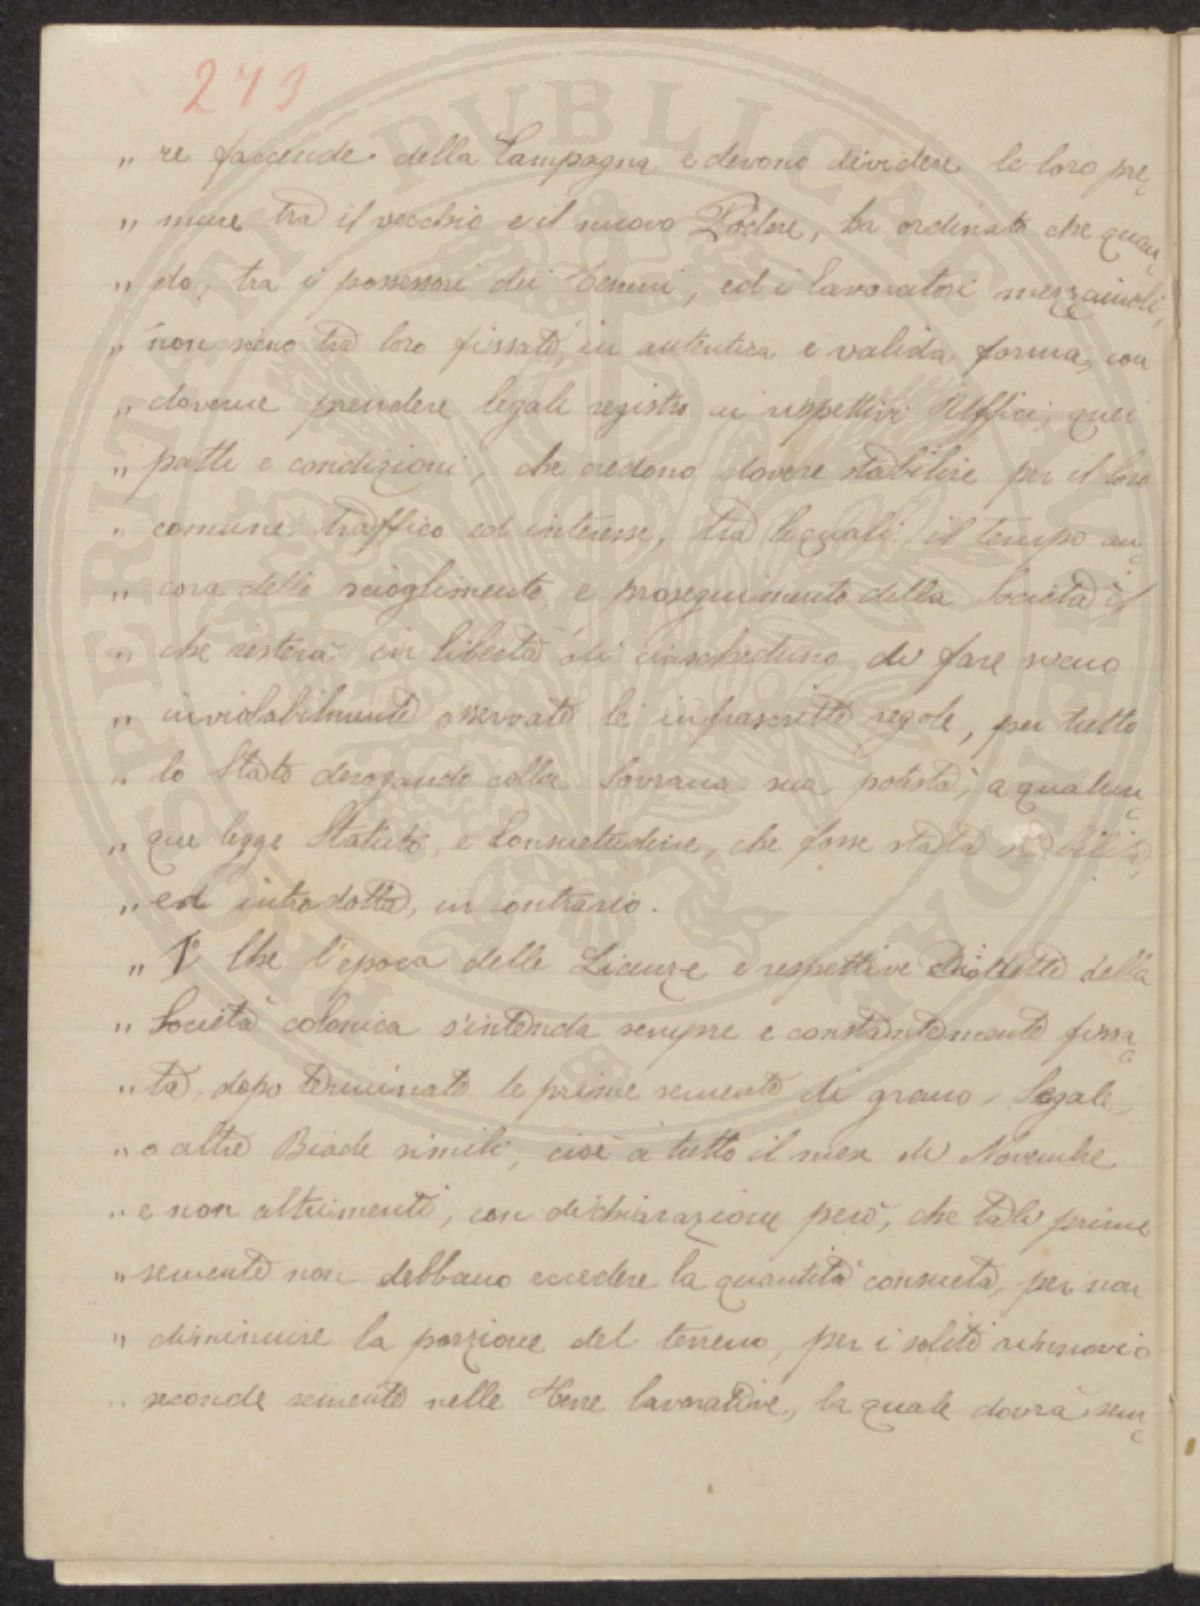 273
„ re faccende della Campagna e devono dividere le loro pre=
„ mure tra il vecchio e il nuovo Podere, ha ordinato che quan=
„ do, tra i possessori dei Terreni, ed i lavoratori mezzaiuoli,
„ non sieno tra loro fissati, in autentica e valida forma, con
„ doverne prendere legale registro ai rispettivi Uffici, quei
„ patti e condizioni, che credono dovere stabilire per il loro
„ comune traffico ed interesse, tra le quali il tempo an=
„ cora dello scioglimento e proseguimento della Società il
„ che resterà in libertà di ciascheduno di fare sieno
„ inviolabilmente osservate le infrascritte regole, per tutto
„ lo Stato derogando colla Sovrana sua potestà, a qualun=
„ que legge Statuto, e Consuetudine, che fosse stata stabilita,
„ ed introdotta, in contrario.
„ 1° Che l'epoca delle Licenze e respettive Disdette della
„ Società colonica s'intenda sempre e constantemente fissa=
„ ta, dopo terminate le prime semente di grano, Segale,
„ o altre Biade simili, cioè a tutto il mese di Novembre
„ e non altrimenti, con dichiarazione però, che tali prime
„ semente non debbano eccedere la quantità consueta, per non
„ diminuire la porzione del terreno, per i soliti rinnovi o
„ seconde semente nelle Terre lavorative, la quale dovrà sem=
PERITATI PUBLICAE